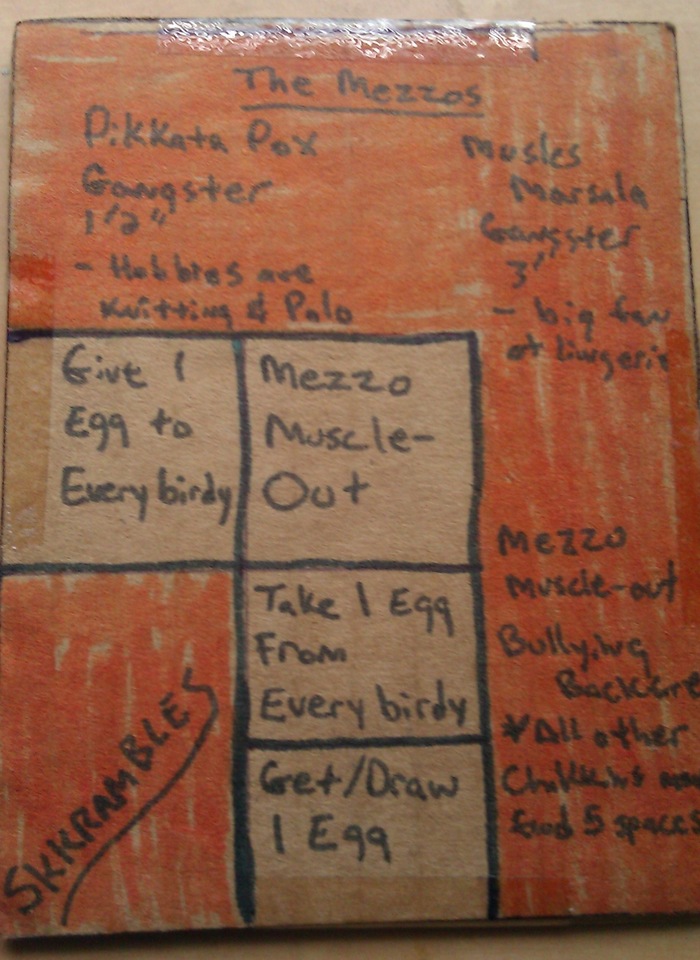 The Mezzos
Pikkata Pox
Gangster
1'2"
- Hobbies are
Knitting & Polo
Musles
Marsala
Gangster
3'
- big fan
of lingerie
Give 1
Egg to
Everybirdy
Mezzo
Muscle-
Out
Take 1 Egg
From
Everybirdy
Get/Draw
1 Egg
Mezzo
Muscle-out
Bullying
*All other
5 spaces
SKKRAMBLES